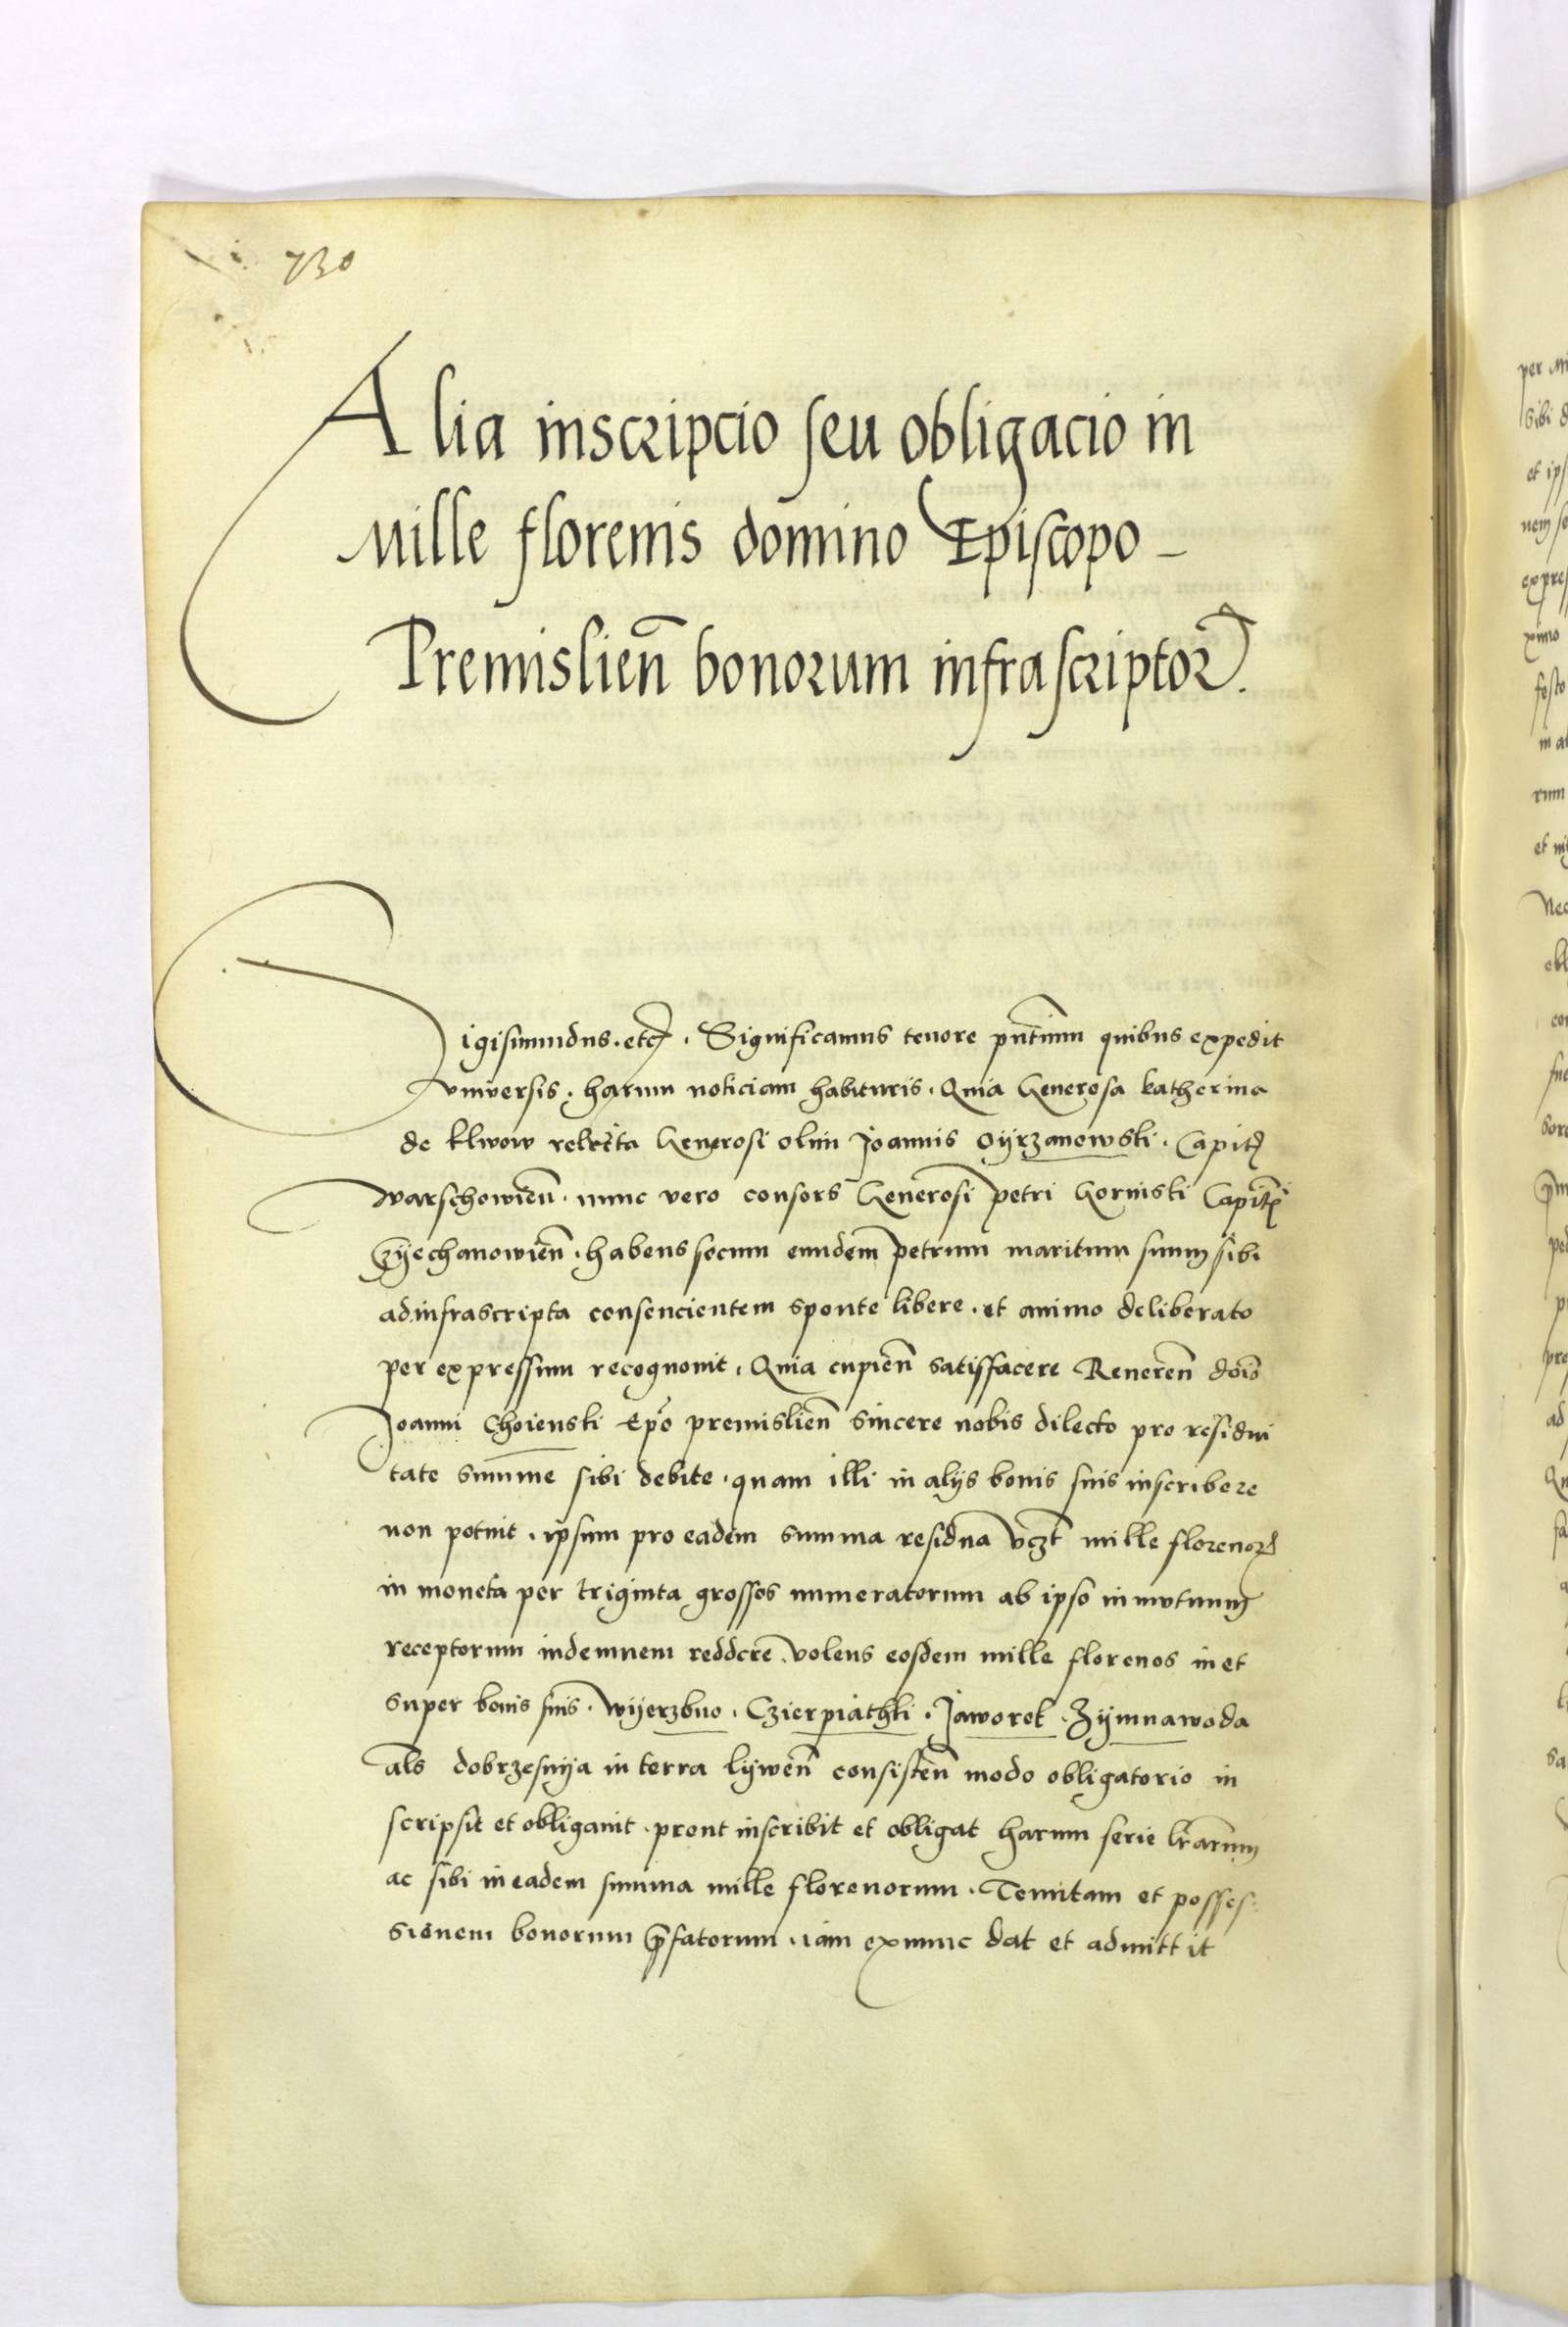 730
Alia inscripcio seu obligacio in
Mille florenis domino Episcopo –
Premislien̄ bonorum infrascriptor̄.
Sigismundus. etc̄. Significamus tenore pn̄tium quibus expedit
vniversis. harum noticiam habituris. Quia Generosa katherina
de klwow relicta Generosi olim Joannis Oÿrzanowski. Capit̄
warschowien̄. nunc vero consors Generosi petri Gorniski Capit̄
Czÿechanowien̄. habens secum eundem petrum maritum suum sibi
ad infrascripta consencientem sponte libere. et animo deliberato
per expressum recognouit. Quia cupien̄ satisfacere Reueren̄ dōīo
Joanni Choienski Ep̄o premislien̄ sincere nobis dilecto pro residui
tate summe sibi debite. quam illi in alijs bonis suis inscribere
non potuit. ipsum pro eadem summa residua vcz̄t mille florenor̄
in moneta per triginta grossos numeratorum ab ipso in mutuum
receptorum indemnem reddere volens eosdem mille florenos in et
super bonis suis. wÿerzbno. Czierpiathki. Jaworek. Zÿmnawoda
al̄s dobrzesnÿa in terra lÿwen̄ consisten̄ modo obligatorio in
scripsit et obligauit. prout inscribit et obligat harum serie lr̄arum
ac sibi in eadem summa mille florenorum. Tenutam et posses:
sionem bonorum p̄fatorum. iam exnunc dat et admittit
per
sibi
et ips
expre
festo
rum
et
Nec